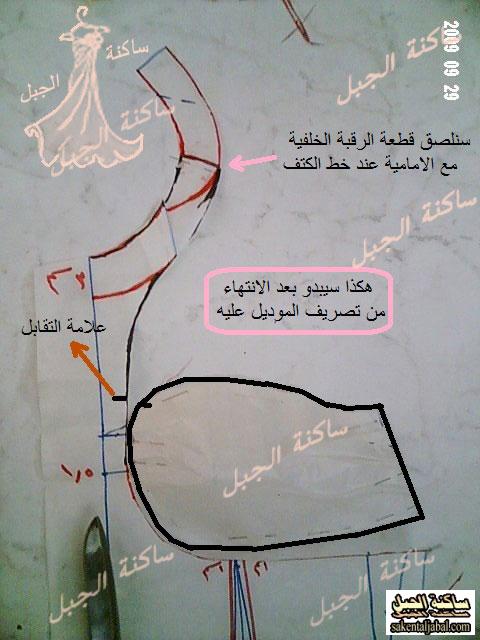 2009 09 29
ساكنة
الجبل
ساكنة الجبل
ساكنة الجبل
سنلصق قطعة الرقبة الخلفية
مع الامامية عند خط الكتف
ساكنة الجبل
هكذا سيبدو بعد الانتهاء
من تصريف الموديل عليه
٣ سم
علامة التقابل
ساكنة الجبل
١,٥
ساكنة الجبل
ساكنة الجبل
ساكنة الجبل
sakentaljabal.com